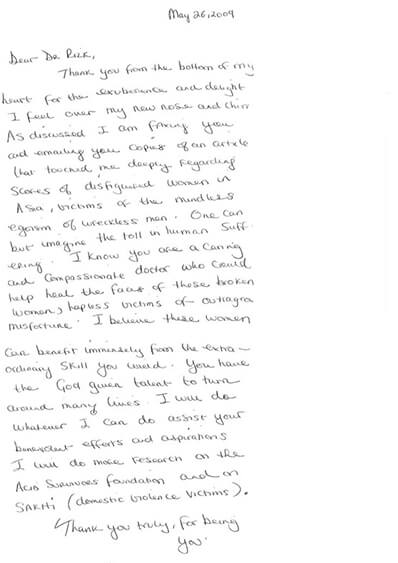 May 26, 2009
Dear Dr Rizk,
Thank you from the bottom of my
heart for the exuberance and delight
I feel over my new nose and chin
As discussed I am faxing you
and emailing you copies of an article
that touched me deeply regarding
scores of disfigured women in
Asia, victims of the mindless
egoism of wreckless men. One can
but imagine the toll in human suff-
ering. I know you are a caring
and compassionate doctor who could
help heal the faces of those broken
women, hapless victims of outragious
misfortune. I believe these women
can benefit immensely from the extra-
ordinary skill you wield. You have
the God given talent to turn
around many lives. I will do
whatever I can do assist your
benevolent efforts and aspirations
I will do more research on the
Acid Survivors Foundation and on
SAKHI (domestic violence victims).
Thank you truly, for being
you.